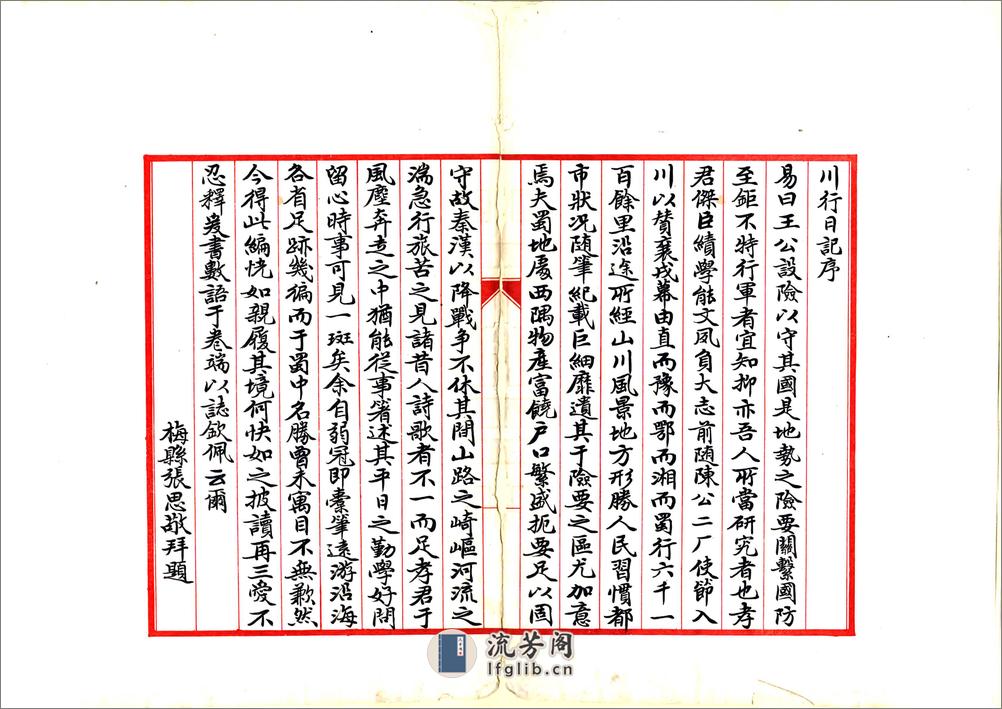 川行日記序
易曰王公設險以守其國是地勢之險要關繫國防
至鉅不特行軍者宜知抑亦吾人所當研究者也孝
君傑臣績學能文夙負大志前随陳公二厂使節入
川以贊襄戎幕由直而豫而鄂而湘而蜀行六千一
百餘里沿途所經山川風景地方形勝人民習慣都
市狀况随筆紀載巨細靡遺其于險要之區尤加意
焉夫蜀地處西隅物產富饒户口繁盛扼要足以固
守故秦漢以降戰爭不休其間山路之崎嶇河流之
湍急行旅苦之見諸昔人詩歌者不一而足孝君于
風塵奔走之中猶能從事箸述其平日之勤學好問
留心時事可見一斑矣余自弱冠即橐筆遠游沿海
各省足跡幾徧而于蜀中名勝曾未寓目不無歉然
今得此編恍如親履其境何快如之披讀再三愛不
忍釋爰書數語于卷端以誌欽佩云爾
梅縣張思敬拜題
流芳阁
lfglib.cn